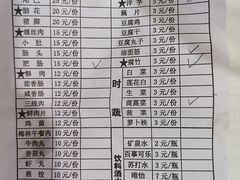 ★脑花 20元/份
猪脚 15元/份
小肚 12元/份
肠头 15元/份
肥肠 12元/份
★酥肉 12元/份
甜香肠 12元/份
咸香肠 12元/份
三线肉 12元/份
★鲜肉片 12元/份
鸡蛋 10元/份
梅林午餐肉 10元/份
牛肉丸 10元/份
香菇丸 10元/份
虾饺 10元/份
燕饺 10元/份
藕片 3元/份
豆腐鸡 3元/份
豆腐干 3元/份
豆腐丸子 3元/份
油面筋 3元/份
★腐竹 3元/份
白菜 3元/份
莲花白 3元/份
花菜 3元/份
茼蒿菜 3元/份
菠菜 3元/份
萝卜秧 3元/份
时蔬
饮料酒水
矿泉水 2元/瓶
百事可乐 3元/瓶
苏打水 3元/瓶
唯怡 7元/瓶